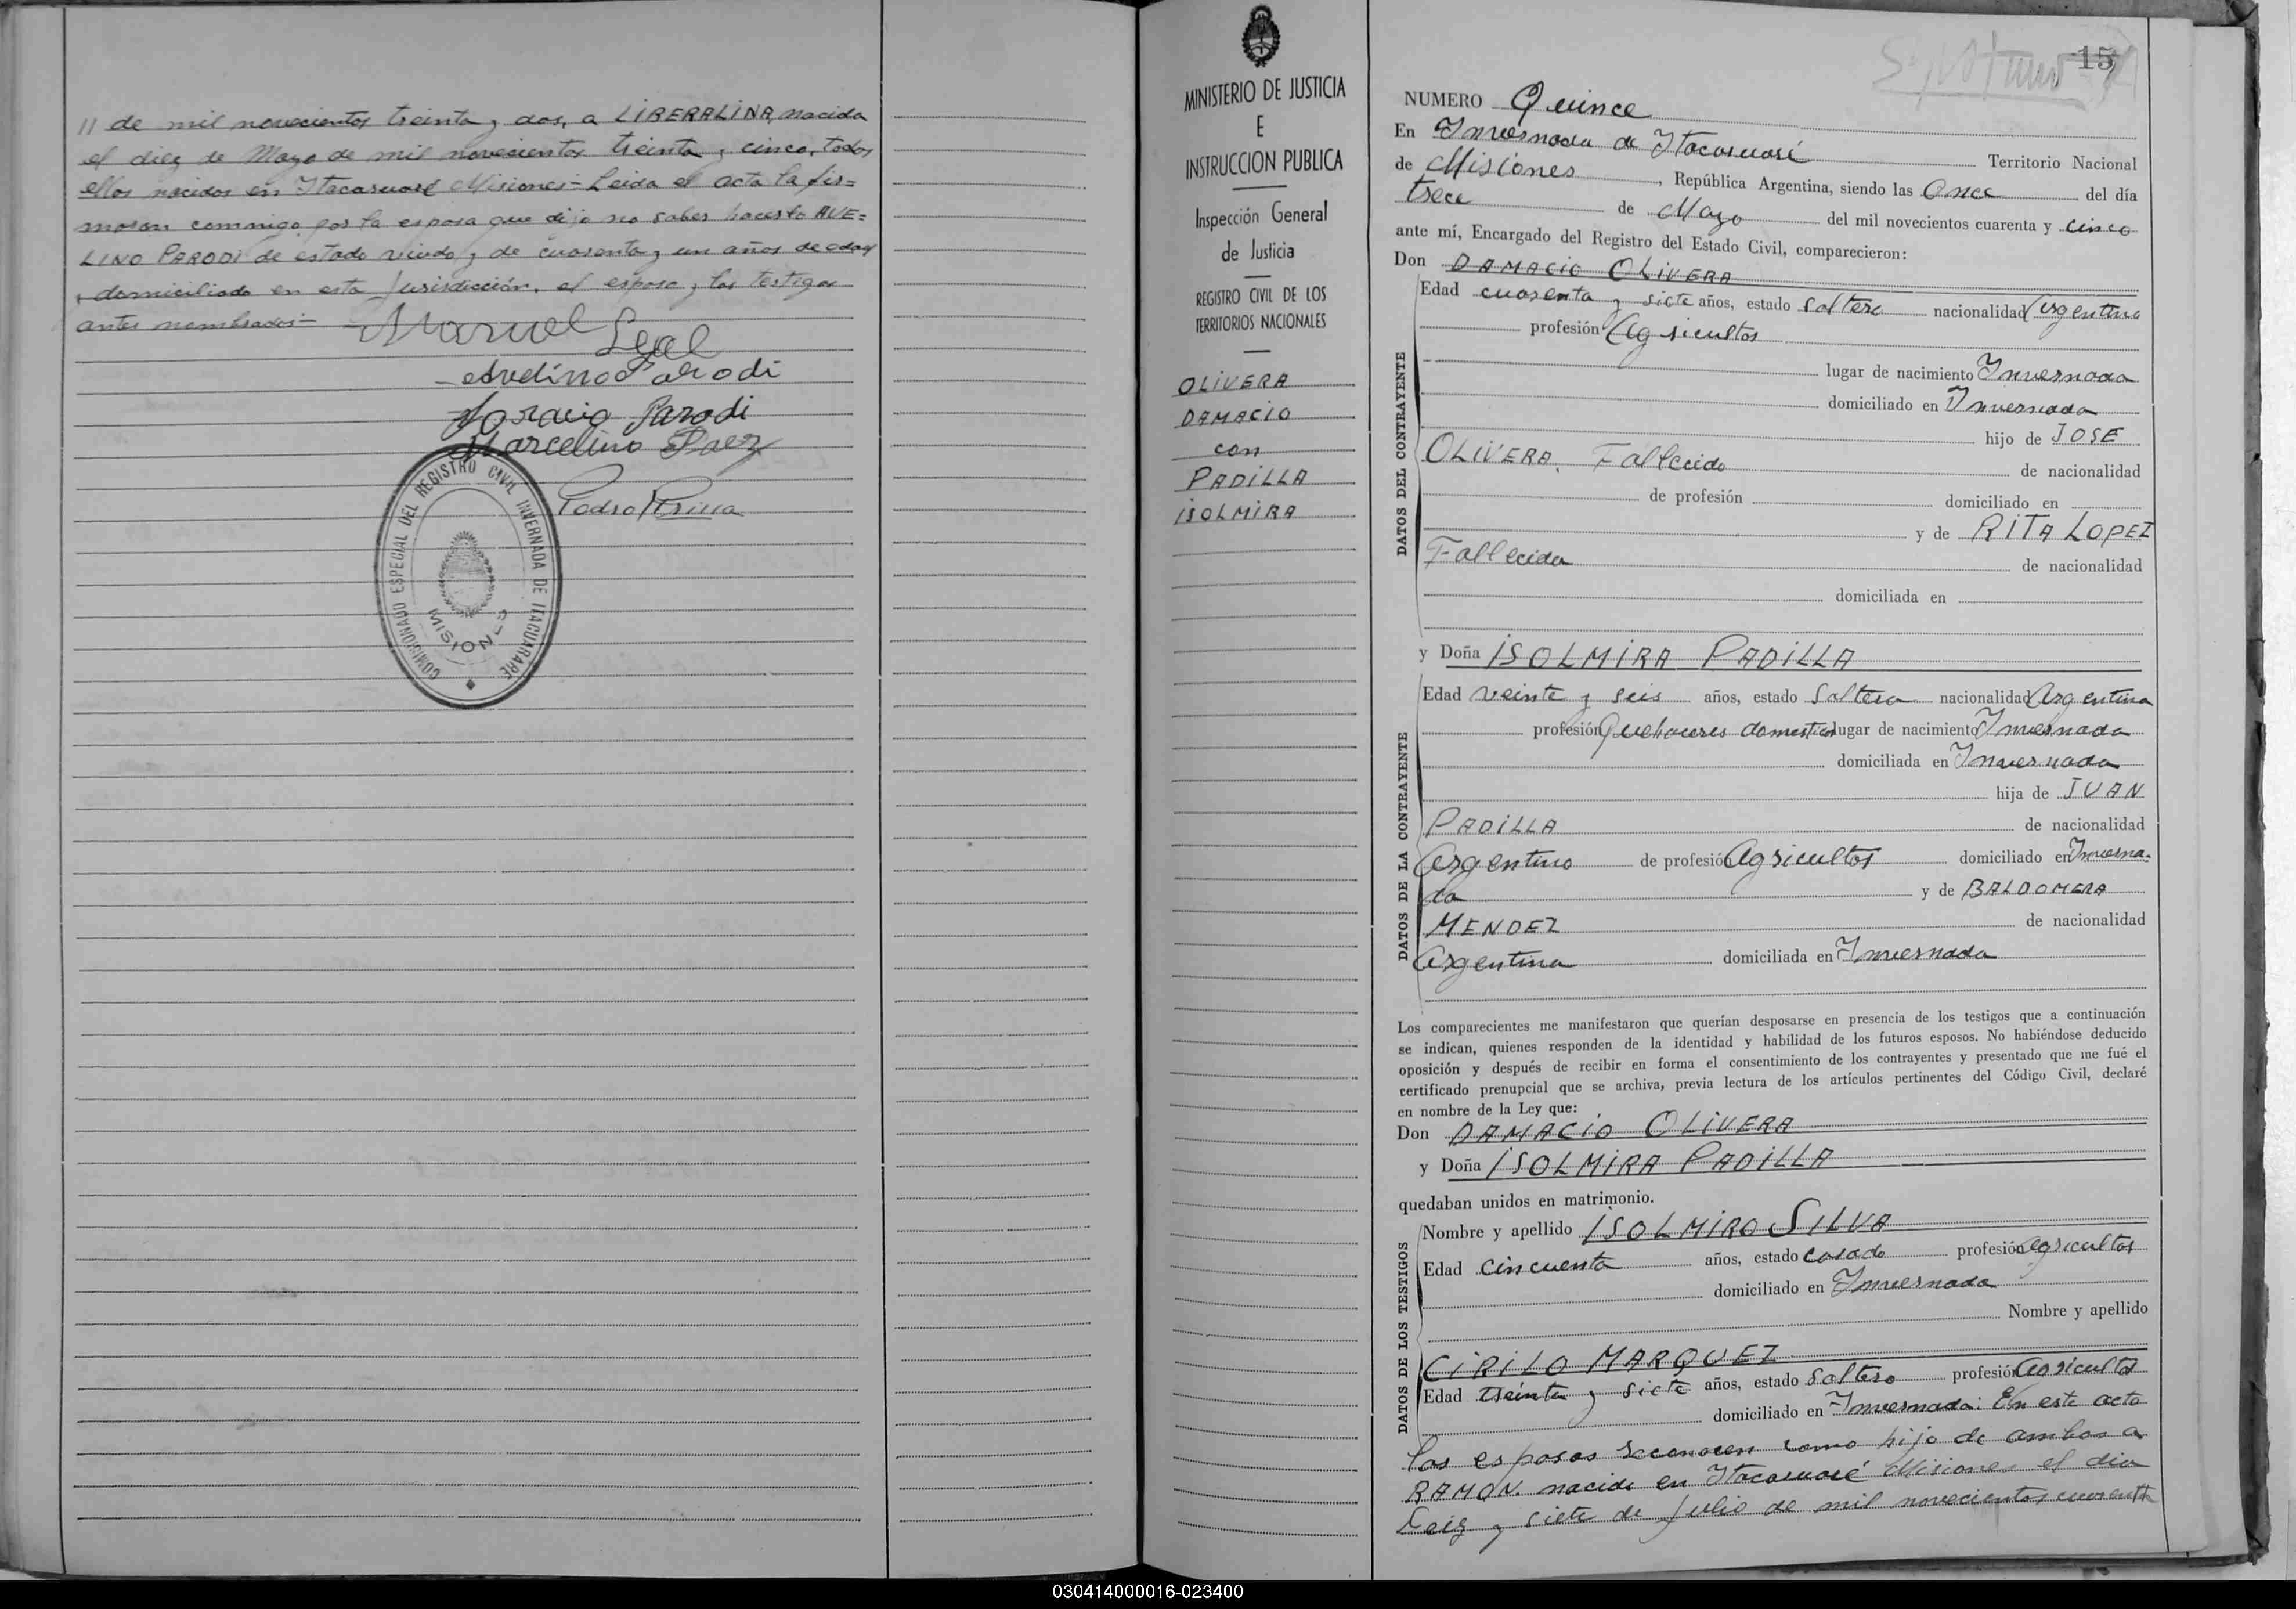 11 de mil novecientos treinta y dos, a LIBERALINA, nacida
el diez de Mayo de mil novecientos treinta y cinco, todos
ellos nacidos en Itacaruaré Misiones - Leida el acta la fir=
maron conmigo por la esposa que dijo no saber hacerlo AVE=
LINO PARODI de estado viudo y de cuarenta y un años de edad
y domiciliado en esta Jurisdicción, el esposo y los testigos
antes nombrados -
Manuel Leal
Avelino Parodi
Horacio Parodi
Marcelino Paez
Pedro
COMISIONADO ESPECIAL DEL REGISTRO CIVIL INVERNADA DE ITACUARARE
MISIONES
MINISTERIO DE JUSTICIA
E
INSTRUCCION PUBLICA
Inspección General
de Justicia
REGISTRO CIVIL DE LOS
TERRITORIOS NACIONALES
OLIVERA
DAMACIO
con
PADILLA
ISOLMIRA
15
NUMERO Quince
En Invernada de Itacaruaré Territorio Nacional
de Misiones, República Argentina, siendo las Once del día
trece de Mayo del mil novecientos cuarenta y cinco
ante mí, Encargado del Registro del Estado Civil, comparecieron:
Don DAMACIO OLIVERA
DATOS DEL CONTRAYENTE
Edad cuarenta y siete años, estado Soltero nacionalidad Argentina
profesión Agricultor
lugar de nacimiento Invernada
domiciliado en Invernada
hijo de JOSE
OLIVERA, Fallecido de nacionalidad
de profesión domiciliado en
y de RITA LOPEZ
Fallecida de nacionalidad
domiciliada en
y Doña ISOLMIRA PADILLA
DATOS DE LA CONTRAYENTE
Edad veinte y seis años, estado Soltera nacionalidad Argentina
profesión Quehaceres domesticos lugar de nacimiento Invernada
domiciliada en Invernada
hija de JUAN
PADILLA de nacionalidad
Argentino de profesión Agricultor domiciliado en Inverna-
da y de BALDOMERA
MENDEZ de nacionalidad
Argentina domiciliada en Invernada
Los comparecientes me manifestaron que querían desposarse en presencia de los testigos que a continuación
se indican, quienes responden de la identidad y habilidad de los futuros esposos. No habiéndose deducido
oposición y después de recibir en forma el consentimiento de los contrayentes y presentado que me fué el
certificado prenupcial que se archiva, previa lectura de los artículos pertinentes del Código Civil, declaré
en nombre de la Ley que:
Don DAMACIO OLIVERA
y Doña ISOLMIRA PADILLA
quedaban unidos en matrimonio.
DATOS DE LOS TESTIGOS
Nombre y apellido ISOLMIRO SILVA
Edad cincuenta años, estado casado profesión agricultor
domiciliado en Invernada
Nombre y apellido
CIRILO MARQUEZ
Edad treinta y siete años, estado Soltero profesión agricultor
domiciliado en Invernada: En este acto
los esposos reconocen como hijo de ambos a
RAMON. nacido en Itacaruaré Misiones el dia
Deiz y siete de Julio de mil novecientos cuarenta
030414000016-023400